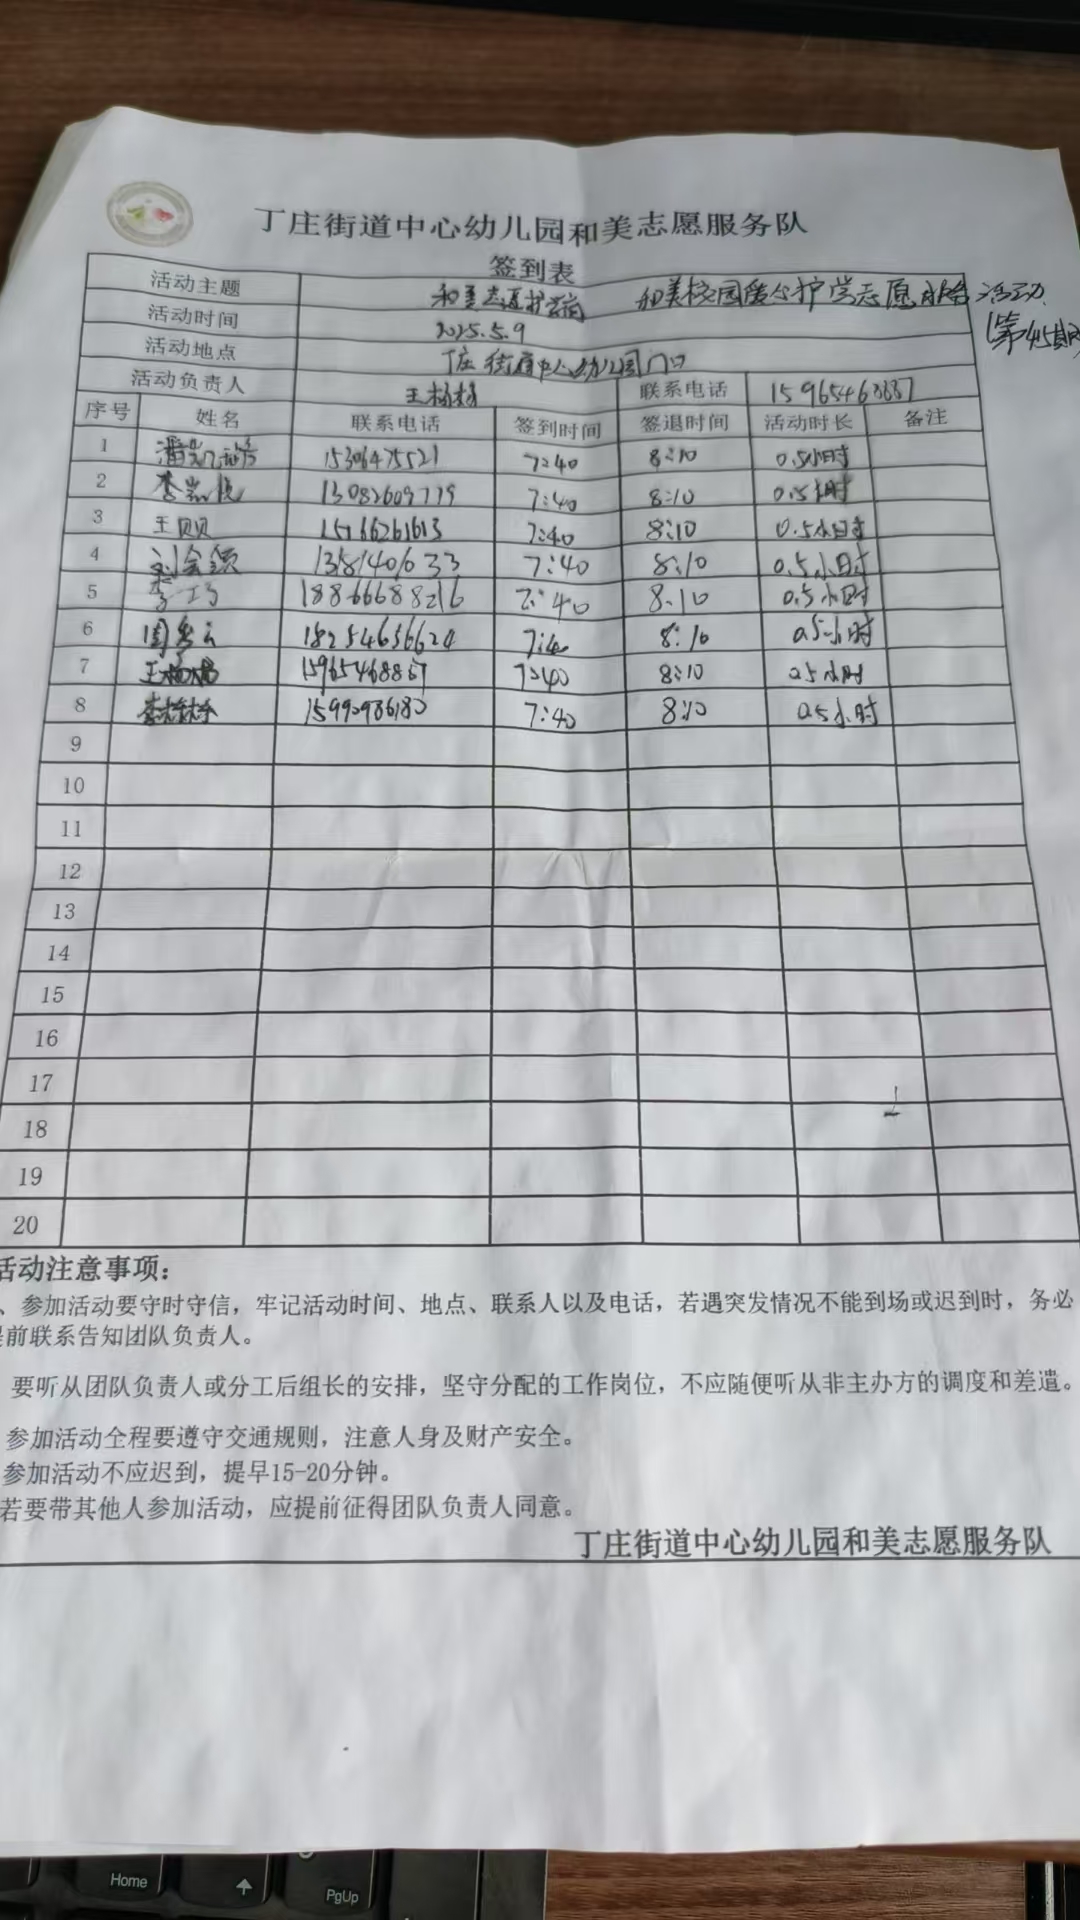 丁庄街道中心幼儿园和美志愿服务队
签到表
活动主题 和美志愿护学岗 和美校园爱心护学志愿服务活动
(第45期)
活动时间 2025.5.9
活动地点 丁庄街道中心幼儿园门口
活动负责人 王杨杨 联系电话
序号 姓名 联系电话 签到时间 签退时间 活动时长 备注
1 15306475521 7:40 8:10 0.5小时
2 13082609719 7:40 8:10 0.5小时
3 王贝贝 15166261613 7:40 8:10 0.5小时
4 刘会领 1358140633 7:40 8:10 0.5小时
5 李巧 18866688216 7:40 8:10 0.5小时
6 周 18254636624 7:40 8:10 0.5小时
7 王杨杨 15965468857 7:40 8:10 0.5小时
8 李 15990986180 7:40 8:10 0.5小时
9
10
11
12
13
14
15
16
17
18
19
20
活动注意事项：
、参加活动要守时守信，牢记活动时间、地点、联系人以及电话，若遇突发情况不能到场或迟到时，务必
提前联系告知团队负责人。
要听从团队负责人或分工后组长的安排，坚守分配的工作岗位，不应随便听从非主办方的调度和差遣。
参加活动全程要遵守交通规则，注意人身及财产安全。
参加活动不应迟到，提早15-20分钟。
若要带其他人参加活动，应提前征得团队负责人同意。
丁庄街道中心幼儿园和美志愿服务队
Home
PgUp